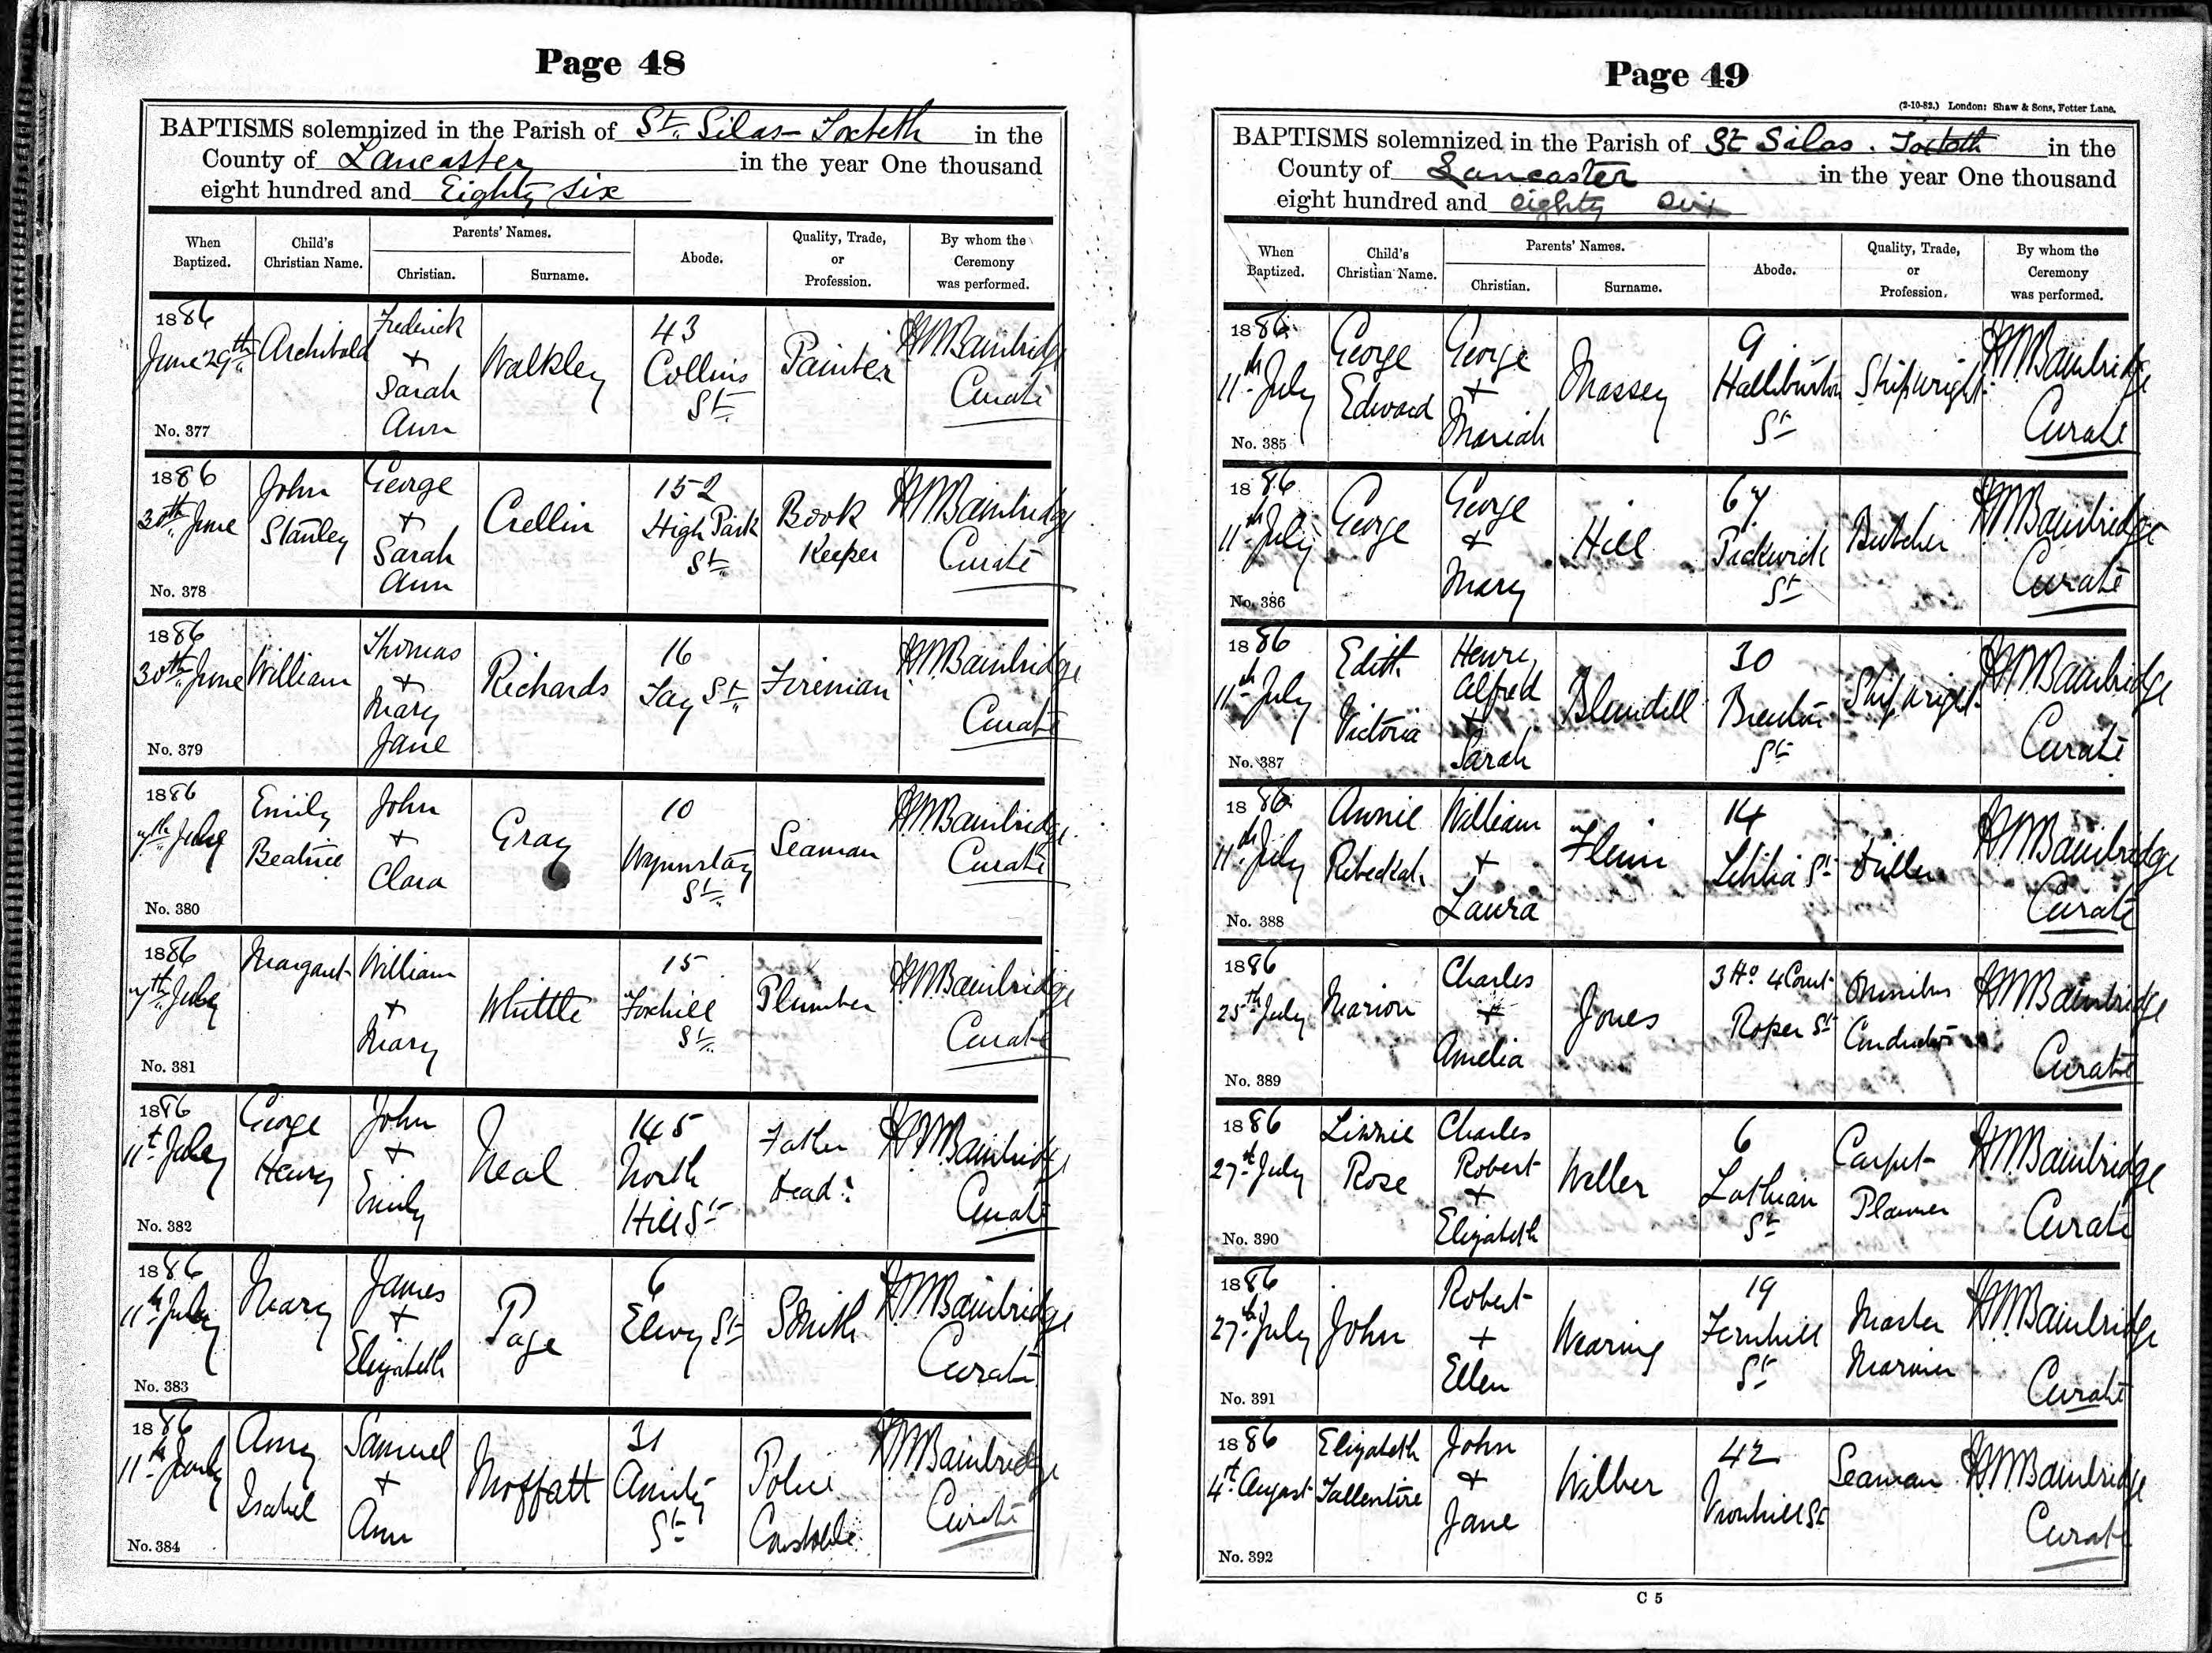 Page 48
BAPTISMS solemnized in the Parish of St. Silas - Toxteth in the
County of Lancaster in the year One thousand
eight hundred and Eighty six
When Baptized. Child's Christian Name. Parents' Names. Christian. Surname. Abode. Quality, Trade, or Profession. By whom the Ceremony was performed.
1886 June 29th Archibald Frederick + Sarah Ann Walkley 43 Collins St. Painter H M Bainbridge Curate
No. 377
1886 30th June John Stanley George + Sarah Ann Crellin 152 High Park St. Book Keeper H M Bainbridge Curate
No. 378
1886 30th June William Thomas + Mary Jane Richards 16 Tay St. Fireman H M Bainbridge Curate
No. 379
1886 7th July Emily Beatrice John + Clara Gray 10 St. Seaman H M Bainbridge Curate
No. 380
1886 7th July Margaret William + Mary Whittle 15 Foxhill St. Plumber H M Bainbridge Curate
No. 381
1886 11th July George Henry John + Emily Neal 145 North Hill St. Father dead. H M Bainbridge Curate
No. 382
1886 11th July Mary James + Elizabeth Page 6 Elwy St Smith H M Bainbridge Curate
No. 383
1886 11th July Amy Isabel Samuel + Ann Moffatt 31 Amity St Police Constable H M Bainbridge Curate
No. 384
Page 49
(2-10-82.) London: Shaw & Sons, Fetter Lane.
BAPTISMS solemnized in the Parish of St Silas. Toxteth in the
County of Lancaster in the year One thousand
eight hundred and eighty six
When Baptized. Child's Christian Name. Parents' Names. Christian. Surname. Abode. Quality, Trade, or Profession. By whom the Ceremony was performed.
1886 11th July George Edward George + Mariah Massey 9 Halliburton St Shipwright H M Bainbridge Curate
No. 385
1886 11th July George George + Mary Hill 67 Pickwick St Butcher H M Bainbridge Curate
No. 386
1886 11th July Edith Victoria Henry Alfred + Sarah Blundell 30 St Shipwright H M Bainbridge Curate
No. 387
1886 11th July Annie Ribeckah William + Laura 14 St H M Bainbridge Curate
No. 388
1886 25th July Marion Charles + Amelia Jones 3 Ho 4 Court Roper St Omnibus Conductor H M Bainbridge Curate
No. 389
1886 27th July Lizzie Rose Charles Robert + Elizabeth Weller 6 Lothian St Carpet Planner H M Bainbridge Curate
No. 390
1886 27th July John Robert + Ellen Wearing 19 Fernhill St Master Mariner H M Bainbridge Curate
No. 391
1886 4th August Elizabeth Tallentire John + Jane Wilber 42 Vronhill St Seaman H M Bainbridge Curate
No. 392
C 5